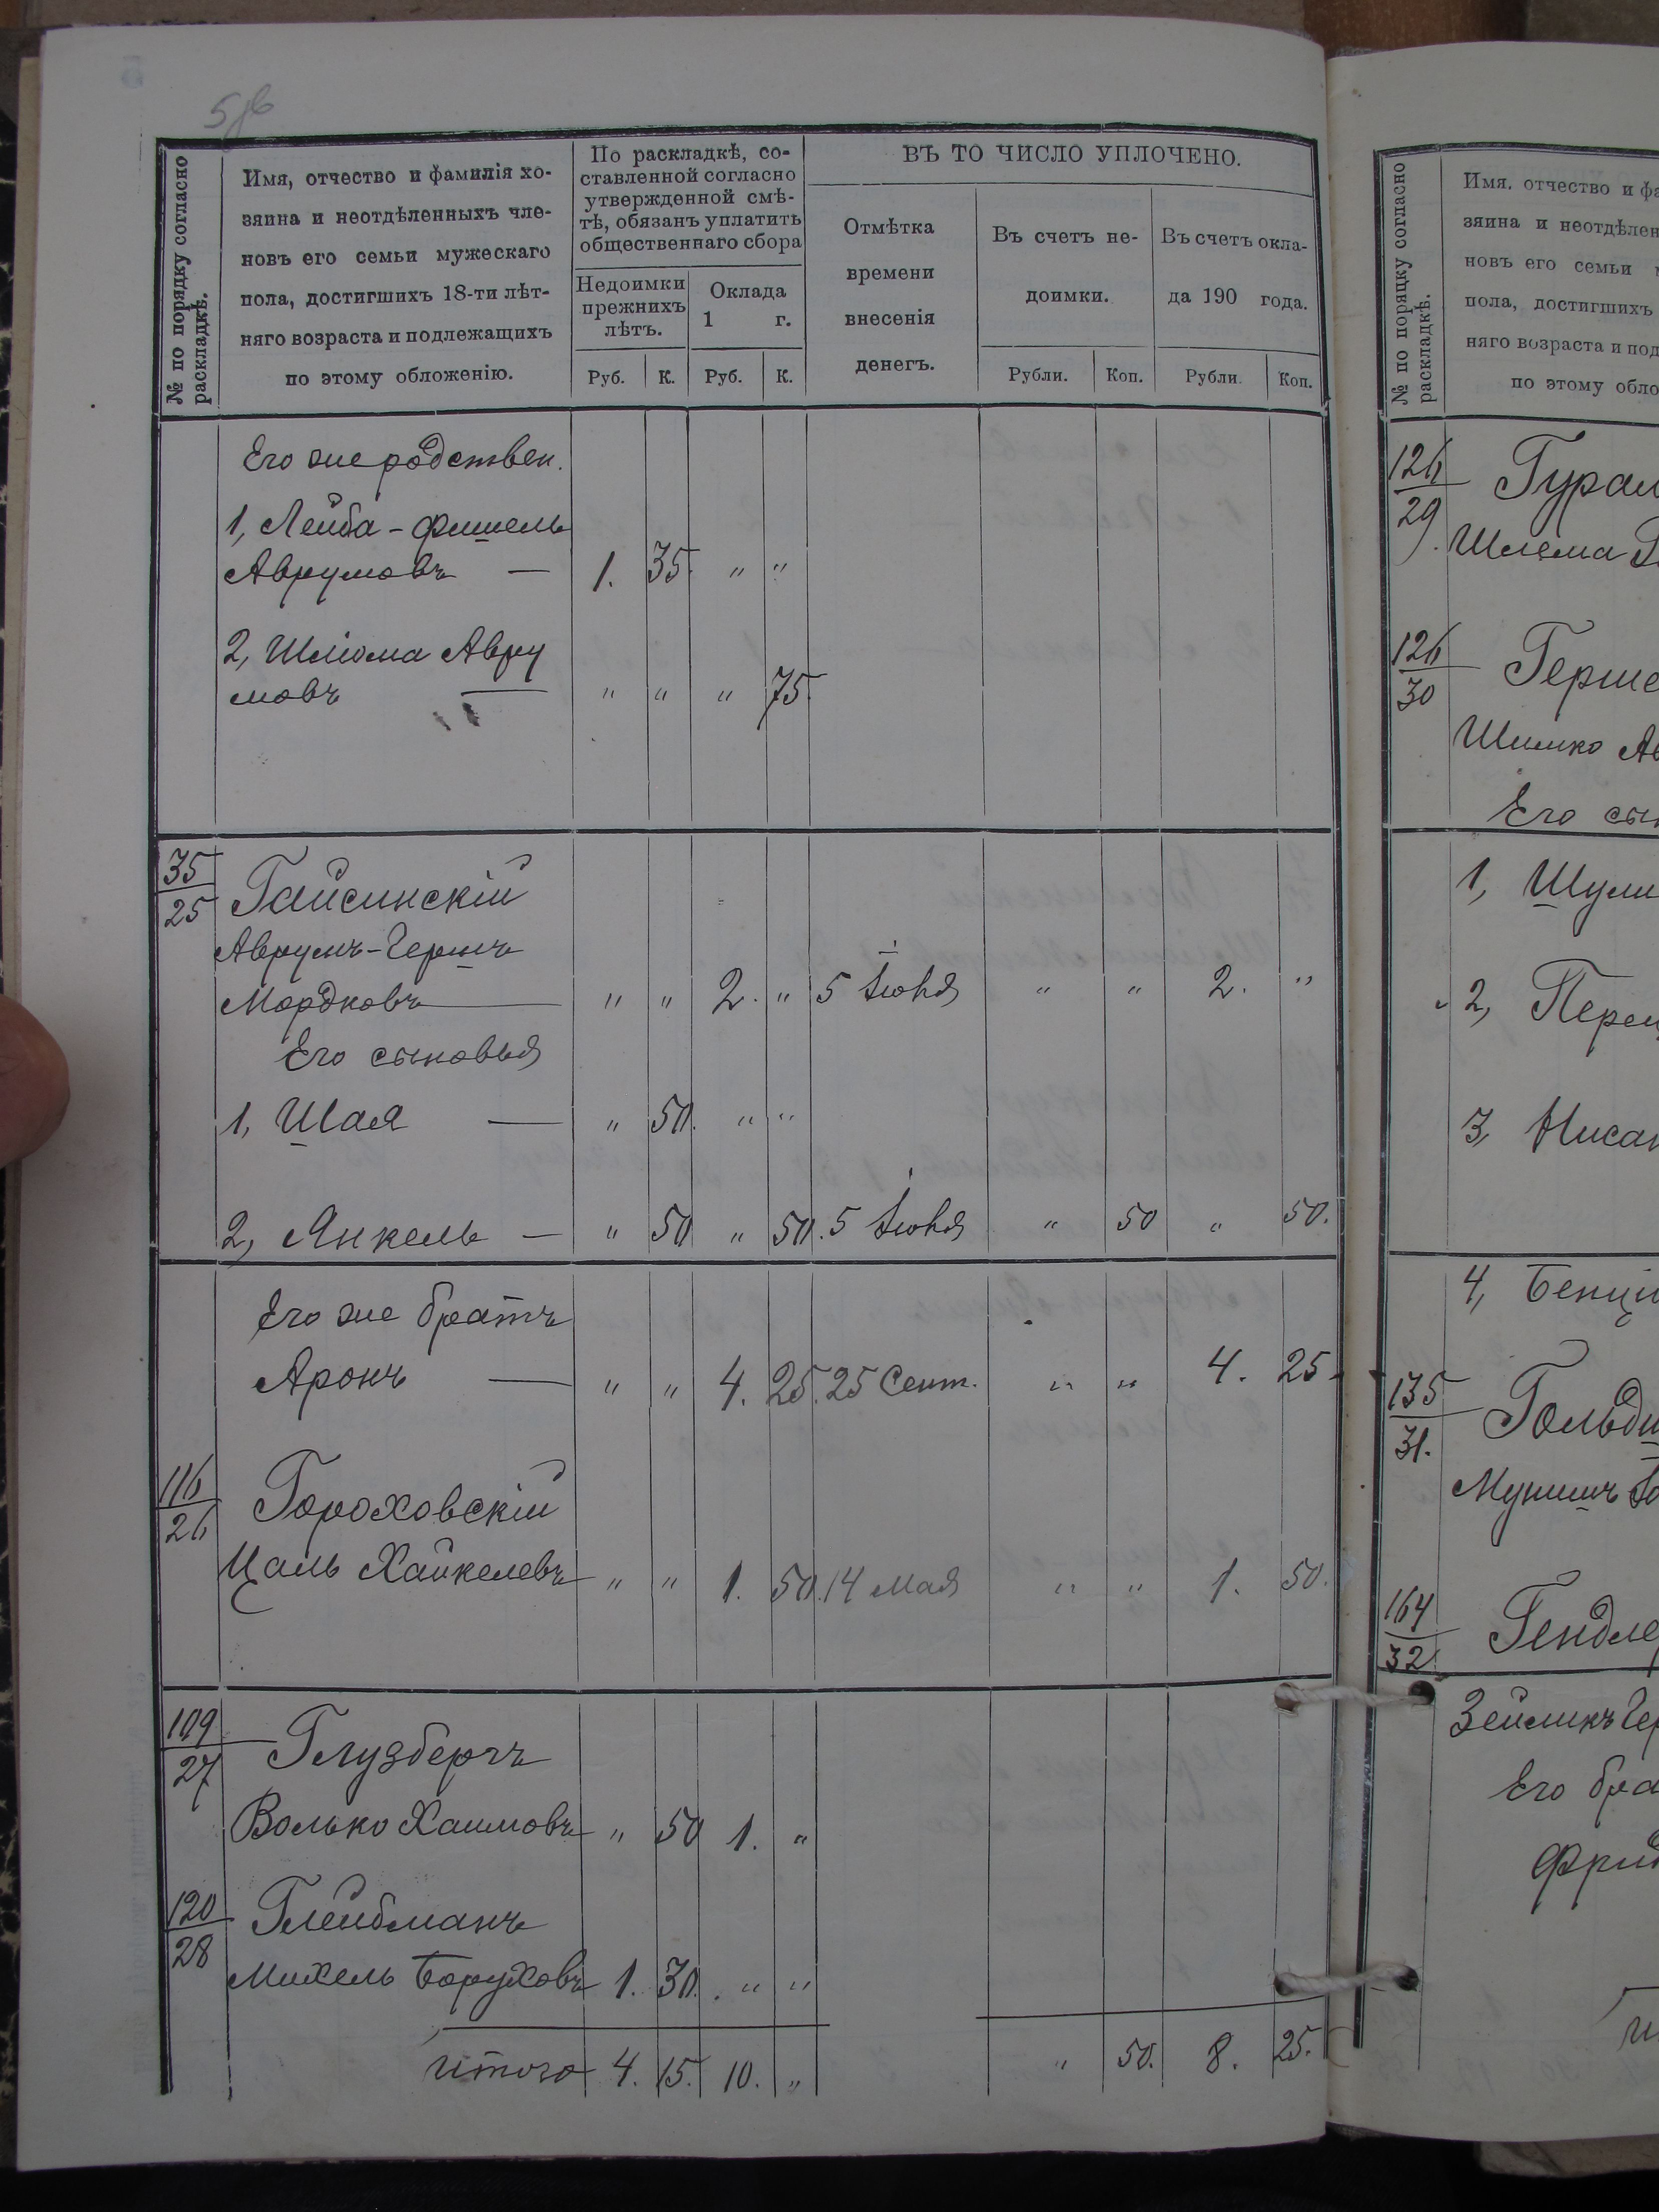 № по порядку согласно раскладкѣ.
Имя, отчество и фамилія хо-
зяина и неотдѣленныхъ чле-
новъ его семьи мужескаго
пола, достигшихъ 18-ти лѣт-
няго возраста и подлежащихъ
по этому обложенію.
По раскладкѣ, со-
ставленной согласно
утвержденной смѣ-
тѣ, обязанъ уплатить
общественнаго сбора
Недоимки
прежнихъ
лѣтъ.
Оклада
1 г.
ВЪ ТО ЧИСЛО УПЛОЧЕНО.
Отмѣтка
времени
внесенія
денегъ.
Въ счетъ не-
доимки.
Въ счетъ окла-
да 190 года.
Руб. К. Руб. К. Рубли. Коп. Рубли. Коп.
Его же родствен.
1, Лейба - Фишель
Аврумовъ — 1. 35. " "
2, Шліома Авру
мовъ — " " " 75.
35
25
Гайсинскій
Аврумъ-Гершъ
Мордковъ — " " 2. " 5 Іюня " " 2. "
Его сыновья
1, Шая — " 50. " "
2, Янкель — " 50 " 50. 5 Іюня " 50 " 50.
Его же братъ
Аронъ — " " 4. 25. 25 Сент. " " 4. 25.
116
26
Гороховскій
Цаль Хайкелевъ " " 1. 50. 14 Мая " " 1. 50.
109
27
Глузбергъ
Волько Хаимовъ " 50 1. "
120
28
Глейбманъ
Михель Боруховъ 1. 30. " "
Итого 4. 15. 10. " " 50. 8. 25.
№ по порядку согласно раскладкѣ.
Имя. отчество и фа
зяина и неотдѣлен
новъ его семьи
пола, достигшихъ
няго возраста и под
по этому обло
126
29
Гурал
Шлема
126
30
Герше
Шимко Ав
Его сын
1, Шули
2, Перец
3, Нисан
4, Бенці
135
31.
Гольд
Мунишъ
164
32
Гендле
Зейликъ Гер
Его бра
Фрид